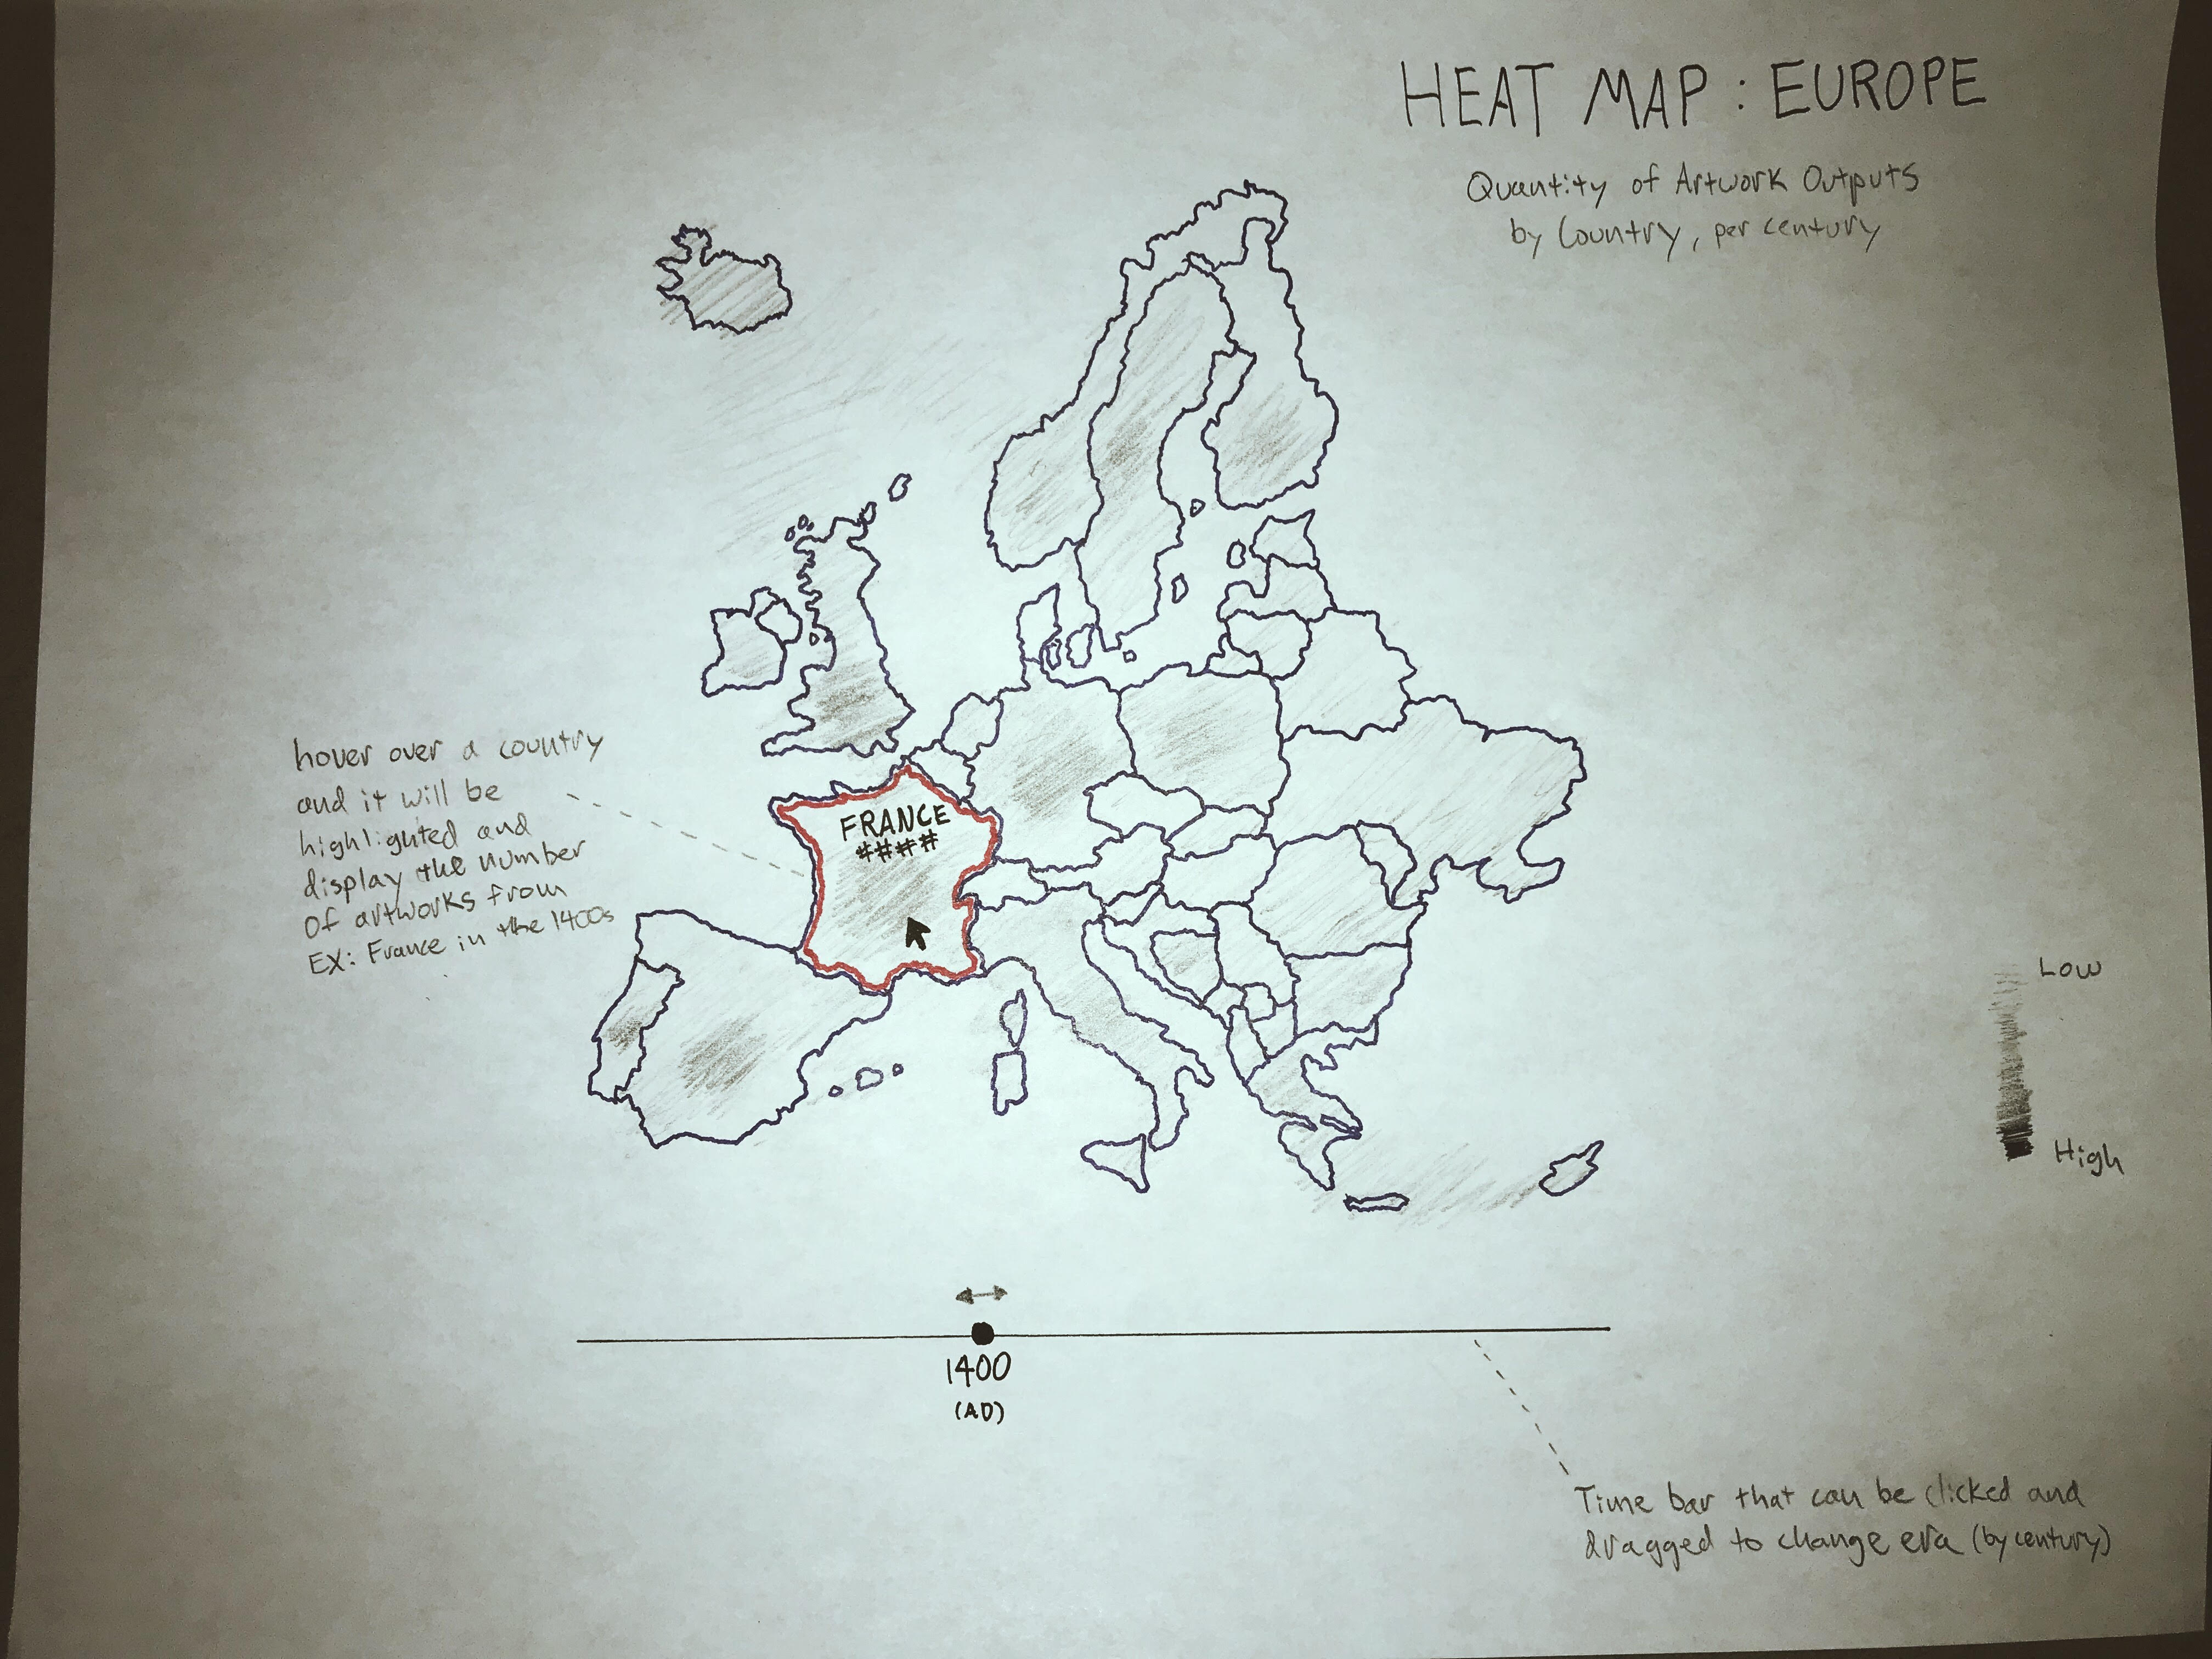 HEAT MAP : EUROPE
Quantity of Artwork Outputs
by Country, per century
hover over a country
and it will be
highlighted and
display the number
of artworks from
EX: France in the 1400s
FRANCE
####
Low
High
1400
(AD)
Time bar that can be clicked and
dragged to change era (by century)